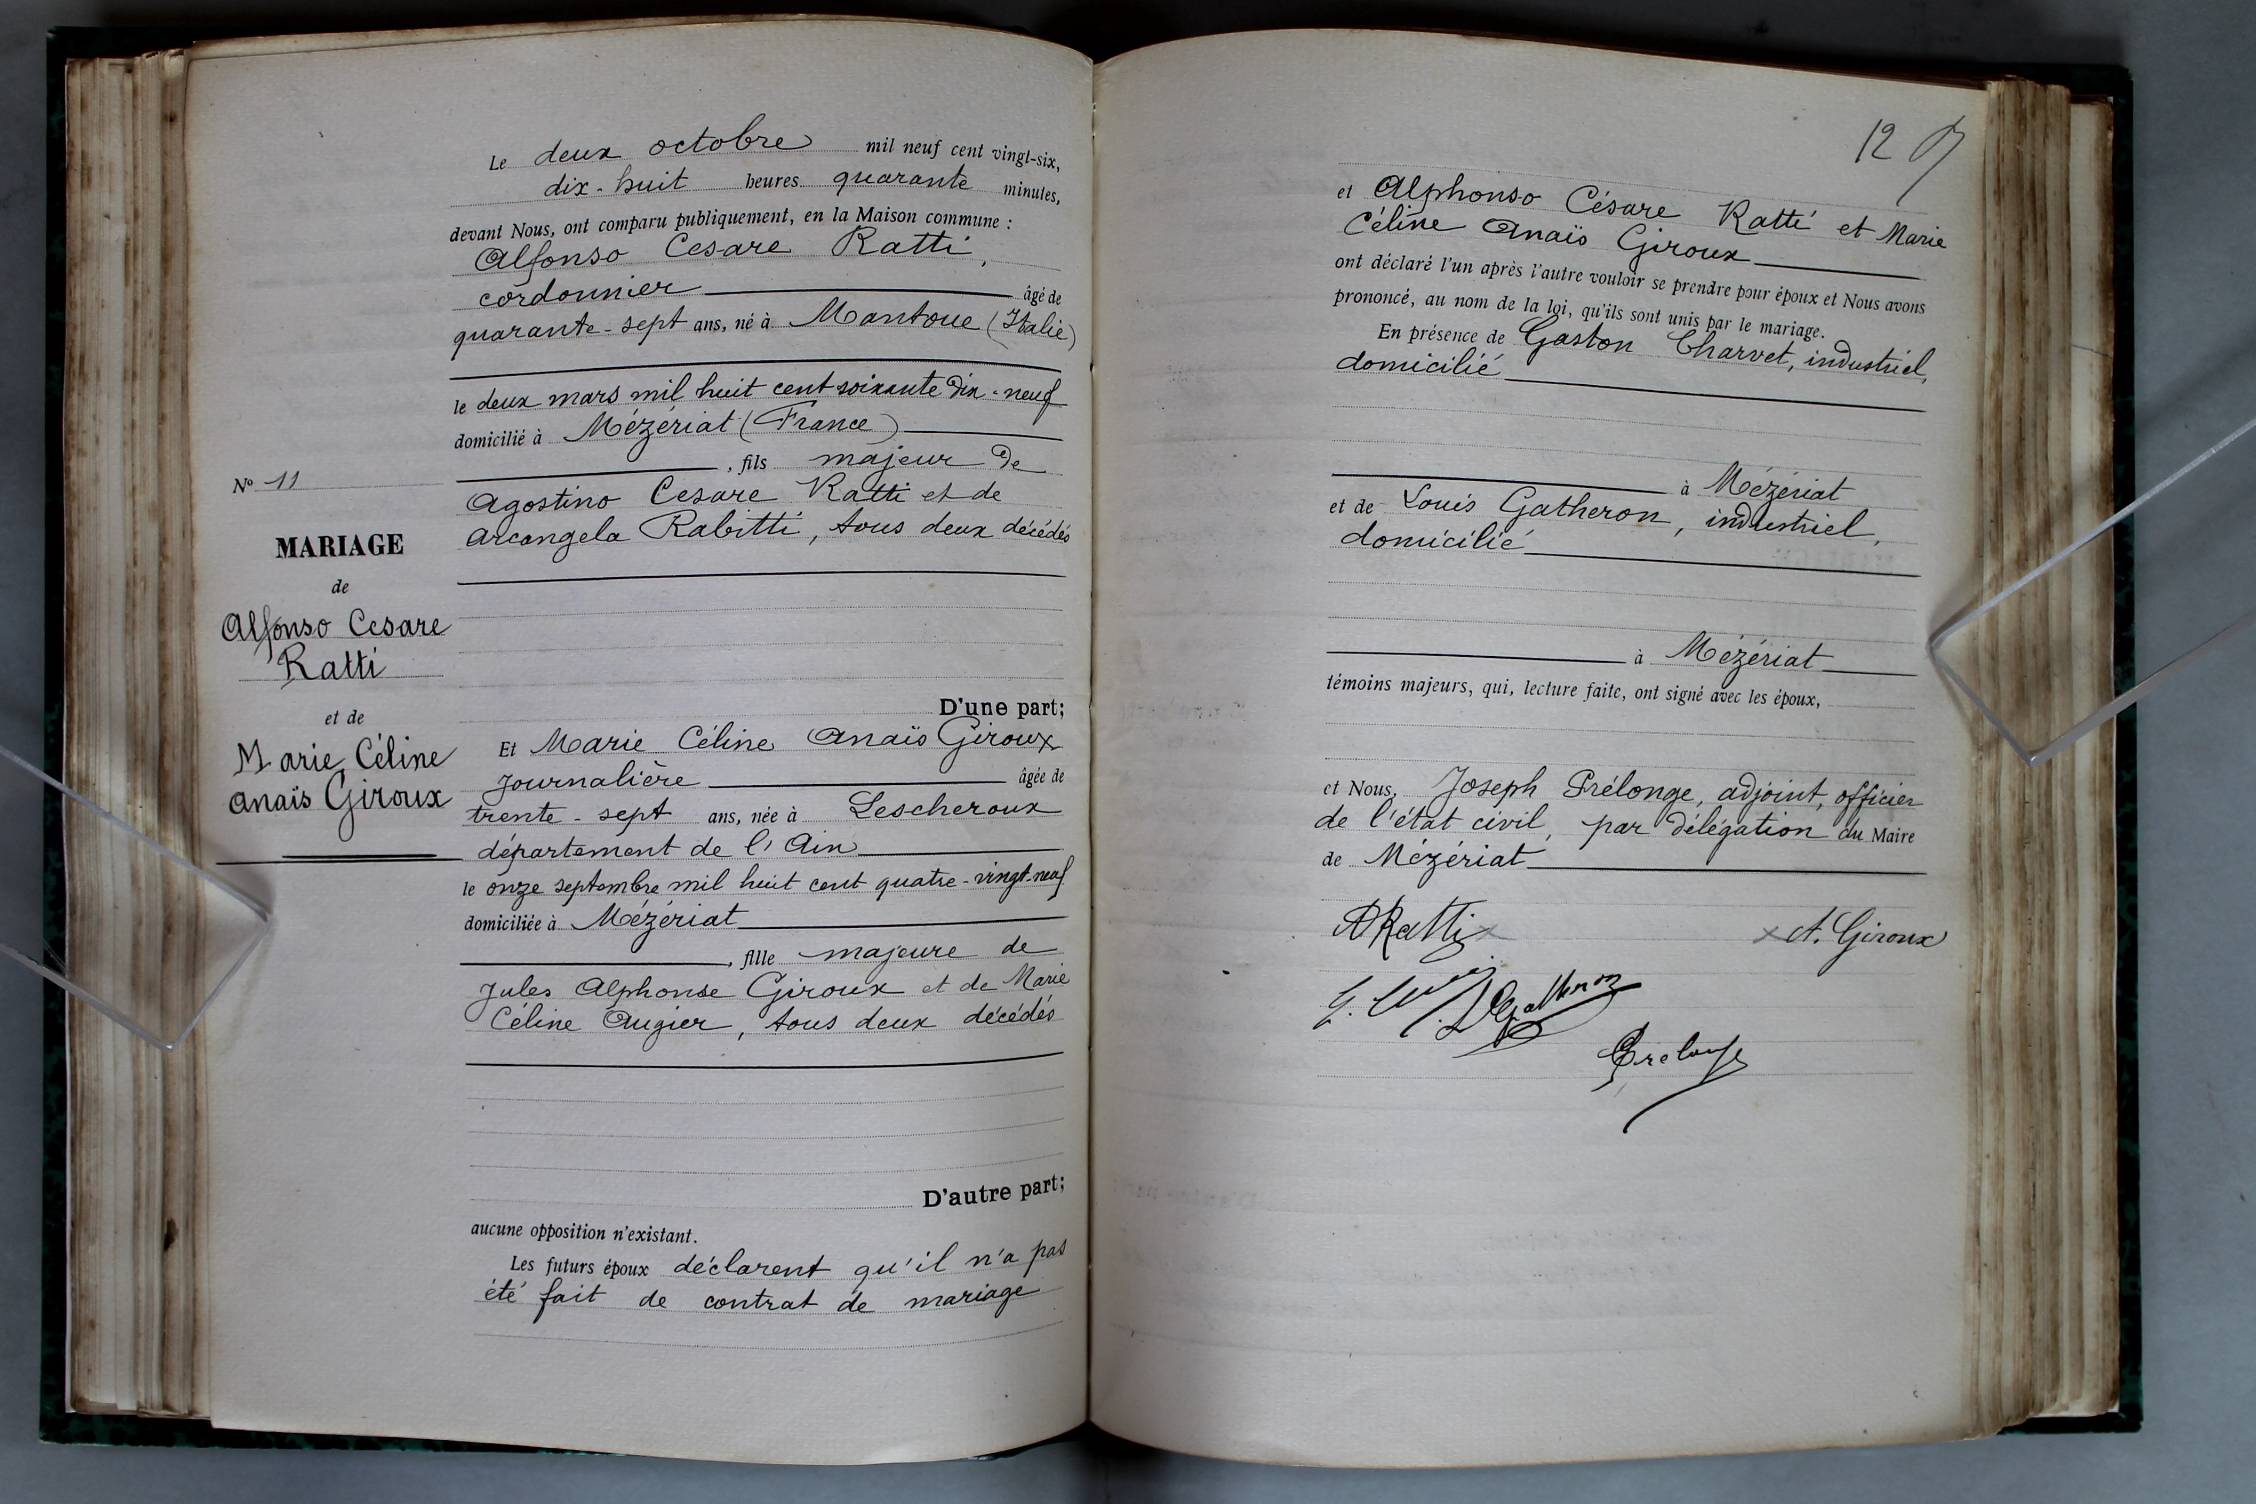 Le deux octobre mil neuf cent vingt-six,
dix-huit heures quarante minutes,
devant Nous, ont comparu publiquement, en la Maison commune :
Alfonso Cesare Ratti,
cordonnier âgé de
quarante-sept ans, né à Mantoue (Italie)
le deux mars mil huit cent soixante dix-neuf
domicilié à Mézériat (France)
, fils majeur de
Agostino Cesare Ratti et de
Arcangela Rabitti, tous deux décédés
D'une part;
Et Marie Céline Anaïs Giroux
journalière âgée de
trente-sept ans, née à Lescheroux
département de l'Ain
le onze septembre mil huit cent quatre-vingt-neuf
domiciliée à Mézériat
, fille majeure de
Jules Alphonse Giroux et de Marie
Céline Augier, tous deux décédés
D'autre part;
aucune opposition n'existant.
Les futurs époux déclarent qu'il n'a pas
été fait de contrat de mariage
N° 11
MARIAGE
de
Alfonso Cesare
Ratti
et de
Marie Céline
Anaïs Giroux
12
et Alphonso Césare Ratti et Marie
Céline Anaïs Giroux
ont déclaré l'un après l'autre vouloir se prendre pour époux et Nous avons
prononcé, au nom de la loi, qu'ils sont unis par le mariage.
En présence de Gaston Charvet, industriel,
domicilié
à Mézériat
et de Louis Gatheron, industriel,
domicilié
à Mézériat
témoins majeurs, qui, lecture faite, ont signé avec les époux,
et Nous, Joseph Prélonge, adjoint, officier
de l'état civil, par délégation du Maire
de Mézériat
A Ratti x
x A. Giroux
L Gatheron
Prelonge